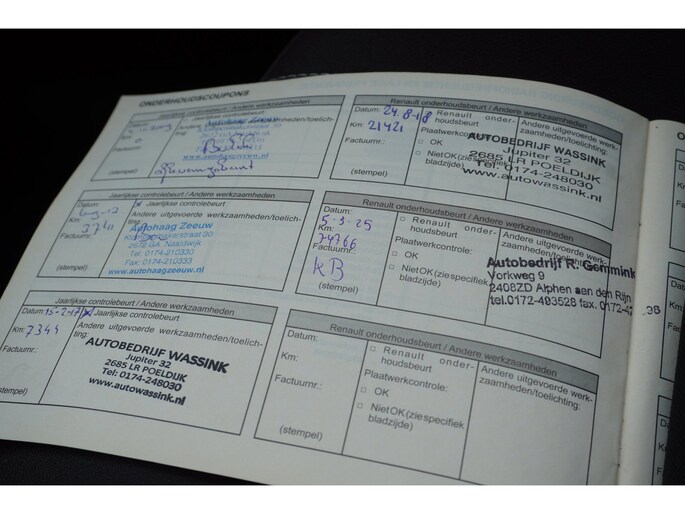 ONDERHOUDSCOUPONS
Jaarlijkse controlebeurt / Andere werkzaamheden
Datum:
Km:
Factuurnr.:
(stempel)
Jaarlijkse controlebeurt / Andere werkzaamheden
Datum:
Km:
3711
Factuurnr.:
Jaarlijkse controlebeurt
Andere uitgevoerde werkzaamheden/toelichting:
Autohaag Zeeuw
2672 GA Naaldwijk
Tel. 0174-210330
Fax. 0174-210333
www.autohaagzeeuw.nl
(stempel)
Jaarlijkse controlebeurt / Andere werkzaamheden
Datum: 15-2-17
Jaarlijkse controlebeurt
Km: 7344
Andere uitgevoerde werkzaamheden/toelichting:
Factuurnr.:
AUTOBEDRIJF WASSINK
Jupiter 32
2685 LR POELDIJK
Tel: 0174-248030
www.autowassink.nl
(stempel)
Renault onderhoudsbeurt / Andere werkzaamheden
Datum: 24-8-18
Km: 21421
Factuurnr.:
(stempel)
Renault onderhoudsbeurt
Plaatwerkcontrole:
OK
Niet OK (zie specifiek bladzijde)
Andere uitgevoerde werkzaamheden/toelichting:
AUTOBEDRIJF WASSINK
Jupiter 32
2685 LR POELDIJK
Tel: 0174-248030
www.autowassink.nl
Renault onderhoudsbeurt / Andere werkzaamheden
Datum:
5-3-25
Km:
74766
Factuurnr.:
KB
(stempel)
Renault onderhoudsbeurt
Plaatwerkcontrole:
OK
Niet OK (zie specifiek bladzijde)
Andere uitgevoerde werkzaamheden/toelichting:
Autobedrijf R. Gemmink
Vorkweg 9
2408ZD Alphen aan den Rijn
tel.0172-493528 fax. 0172-4
Renault onderhoudsbeurt / Andere werkzaamheden
Datum:
Km:
Factuurnr.:
(stempel)
Renault onderhoudsbeurt
Plaatwerkcontrole:
OK
Niet OK (zie specifiek bladzijde)
Andere uitgevoerde werkzaamheden/toelichting: